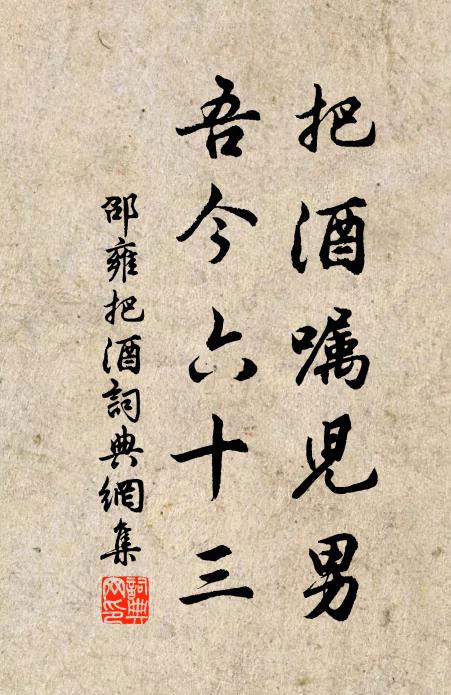 把酒嘱兒男
吾今六十三
邵雍把酒詞典網集
詞典
网印